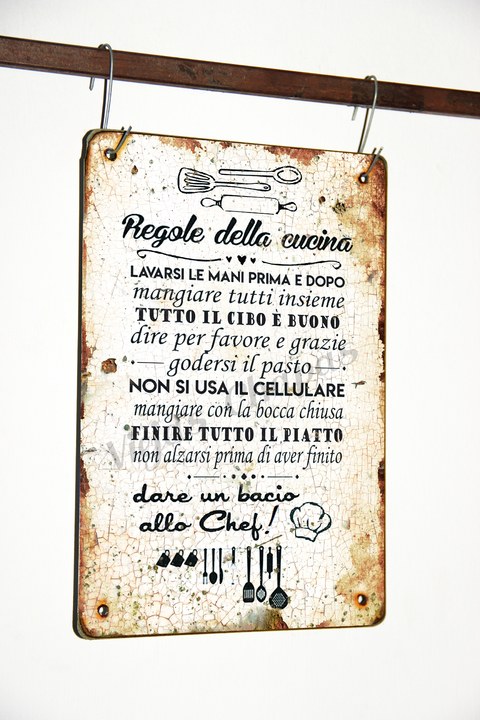 Regole della cucina
LAVARSI LE MANI PRIMA E DOPO
mangiare tutti insieme
TUTTO IL CIBO È BUONO
dire per favore e grazie
godersi il pasto
NON SI USA IL CELLULARE
mangiare con la bocca chiusa
FINIRE TUTTO IL PIATTO
non alzarsi prima di aver finito
dare un bacio
allo Chef!